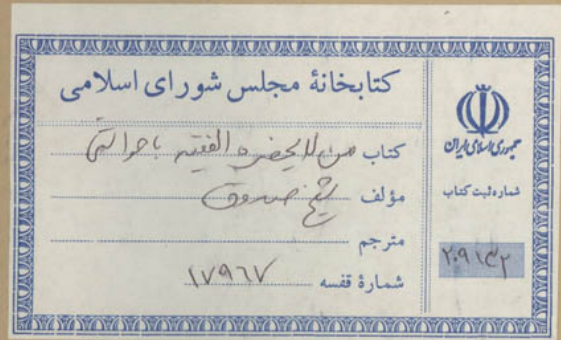 کتابخانهٔ مجلس شورای اسلامی
کتاب من لا یحضره الفقیه با حواشی
مؤلف شیخ صدوق
مترجم
شمارهٔ قفسه ۱۷۹۶۷
جمهوری اسلامی ایران
شماره ثبت کتاب
۲۰۹۱۳۲